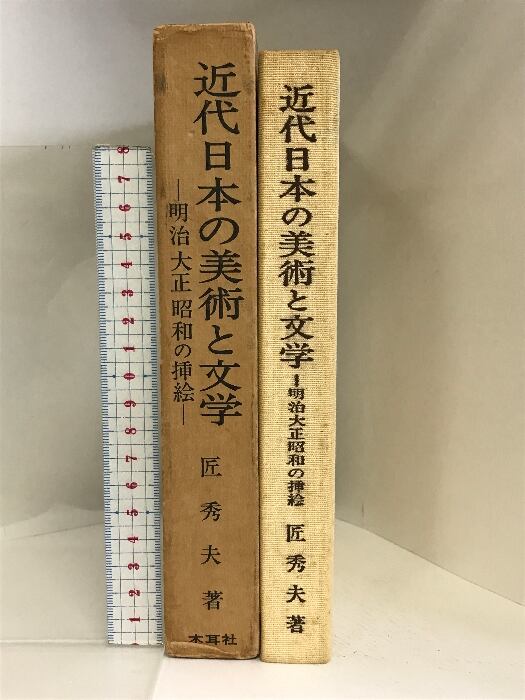 近代日本の美術と文学
―明治大正昭和の挿絵―
匠秀夫著
木耳社
近代日本の美術と文学
―明治大正昭和の挿絵
匠秀夫著
8
7
6
5
4
3
2
1
0
9
8
7
6
5
4
3
2
1